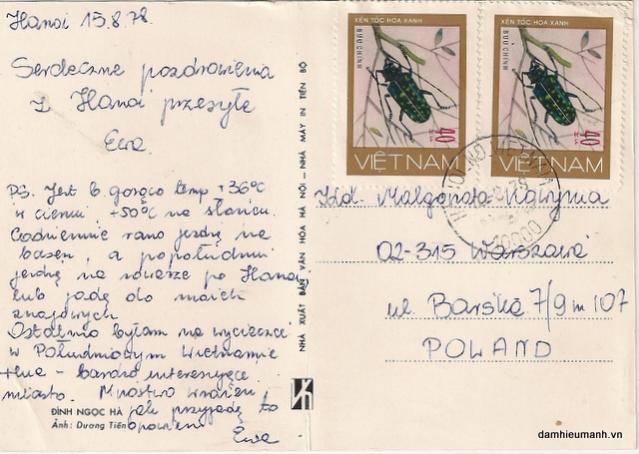 Hanoi 15.8.78.
Serdeczne pozdrowienia
z Hanoi przesyła
Ewa.
PS. Jest b. gorąco temp +36°C
w cieniu, +50°C na słońcu.
Codziennie rano jeżdżę na
basen, a popołudniu
jeżdżę na rowerze po Hanoi
lub jadę do moich
znajomych
Ostatnio byłam na wycieczce
w Południowym Wietnamie
Hue - bardzo interesujące
miasto. Mnóstwo wrażeń,
jak przyjadę to
opowiem
Ewa
ĐÌNH NGỌC HÀ
Ảnh: Dương Tiến
NHÀ XUẤT BẢN VĂN HÓA HÀ NỘI — NHÀ MÁY IN TIẾN BỘ
XÉN TÓC HOA XANH
BƯU CHÍNH
40
XU
VIỆTNAM
XÉN TÓC HOA XANH
BƯU CHÍNH
40
XU
VIỆTNAM
Małgorzata
02-315 Warszawa
ul. Barska 7/9 m 107
POLAND
damhieumanh.vn